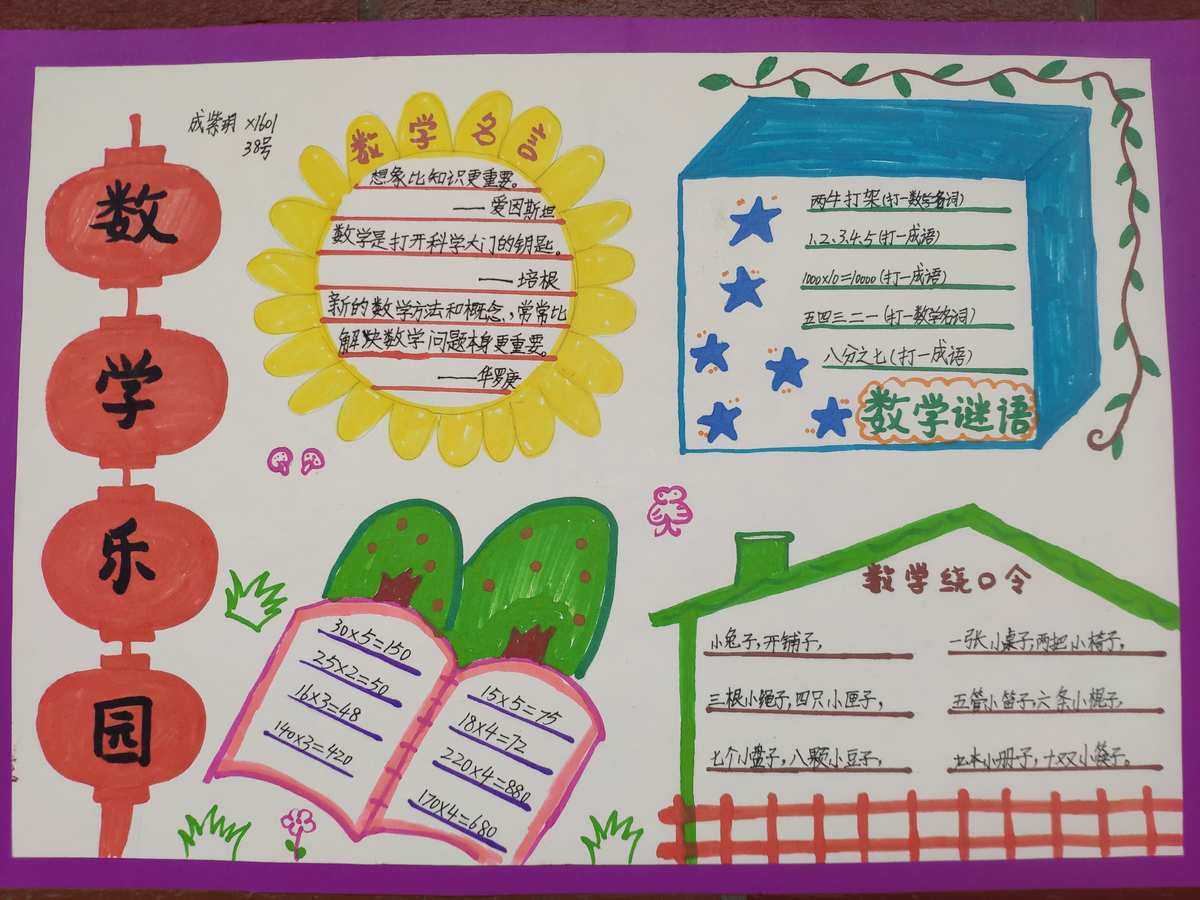 数
学
乐
园
成紫玥 X1601
38号
数学名言
想象比知识更重要。
——爱因斯坦
数学是打开科学大门的钥匙。
——培根
新的数学方法和概念,常常比
解决数学问题本身更重要。
——华罗庚
两牛打架(打一数学名词)
1、2、3、4、5(打一成语)
1000×10=10000(打一成语)
五四三二一(打一数学名词)
八分之七(打一成语)
数学谜语
30×5=150
25×2=50
16×3=48
140×3=420
15×5=75
18×4=72
220×4=880
170×4=680
数学绕口令
小兔子,开铺子,
一张小桌子,两把小椅子,
三根小绳子,四只小匣子,
五管小笛子,六条小棍子,
七个小盘子,八颗小豆子,
九本小册子,十双小筷子。